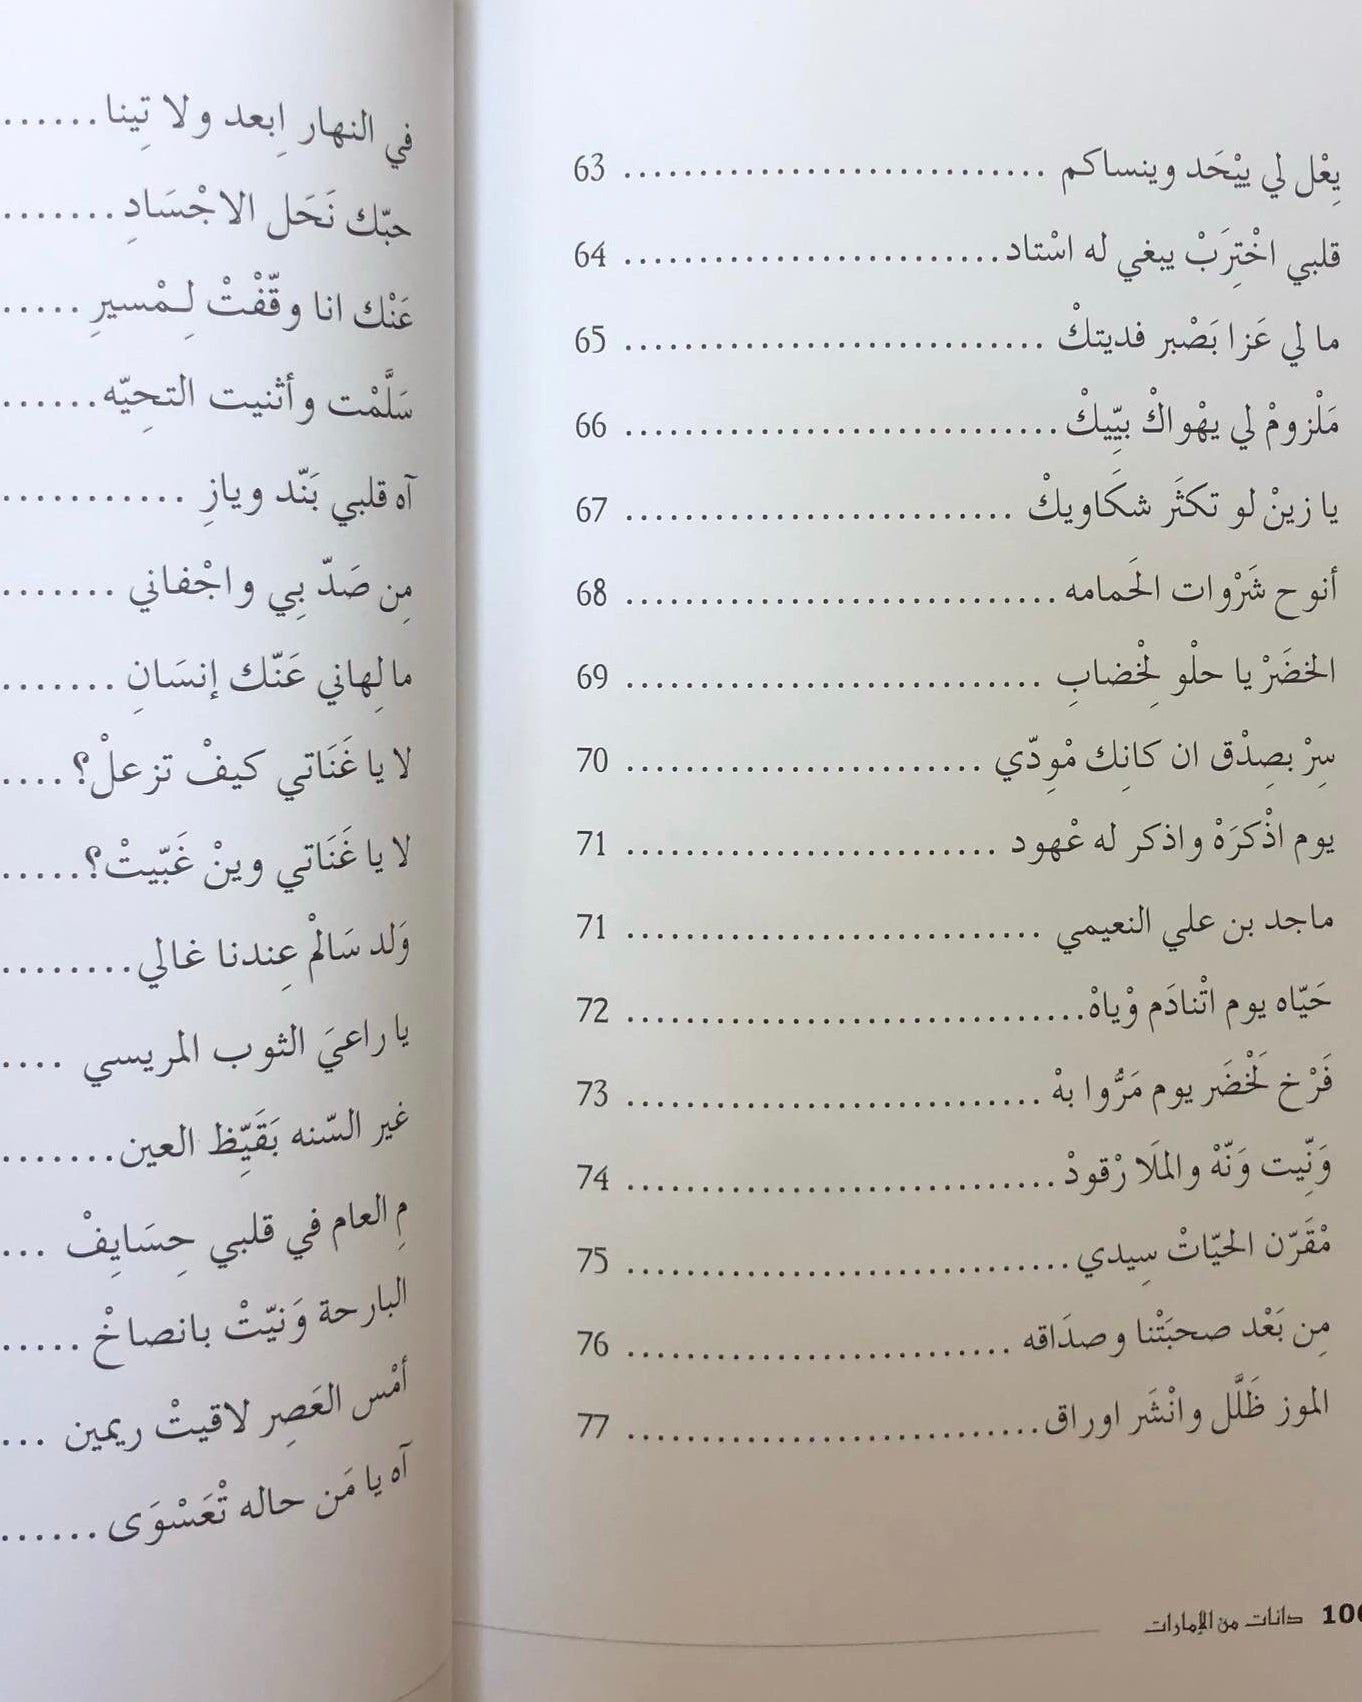 يِعْل لي ييْحَد وينساكم .............................. 63
قلبي اخْتِرَبْ يبغي له اسْتاد.......................... 64
ما لي عَزا بَصْبر فديتكْ ............................. 65
مَلْزومْ لي يهْواكْ بيِّيكْ............................. 66
يا زينْ لو تكثَر شكَاويكْ ........................... 67
أنوح شَرْوات الحَمامه............................. 68
الخضَرْ يا حلْو لِخْضابِ ............................ 69
سِرْ بصِدْق ان كانِك مْودّي ........................ 70
يوم اذْكرَهْ واذكر له عْهود ......................... 71
ماجد بن علي النعيمي ............................ 71
حَيّاه يوم اتْنادَم وْياهْ............................... 72
فَرْخ لَخْضَر يوم مَرُّوا بهْ ............................ 73
وَنِّيت وَنّهْ والملَا رْقودْ............................. 74
مْقَرّن الحيّاتْ سِيدي.............................. 75
مِن بَعْد صحبَتْنا وصدَاقه .......................... 76
الموز ظَلَّل وانْشَر اوراق............................ 77
دانات من الإمارات
في النهار اِبعد ولا تِينا ......
حبّك نَحَل الاجْسَادِ........
عَنْك انا وقّفْتْ لِـمْسيرِ .....
سَلَّمْت وأثنيت التحِيّه......
آه قلبي بَنّد ويازِ ............
مِن صَدّ بِي واجْفاني ........
ما لِهاني عَنّك إنسَانِ .......
لا يا غَنَاتي كيفْ تزعلْ؟ ....
لا يا غَنَاتي وينْ غَبّيتْ؟.....
وَلد سَالمْ عِندنا غالي.........
يا راعيَ الثوب المريسي ....
غير السّنه بَقَيِّظ العين.......
مِ العام في قلبي حِسَايِفْ ...
البارحة وَنيّتْ بانصاخْ .....
أمْس العَصِر لاقيتْ ريمين ...
آه يا مَن حاله تْعَسْوَى ......